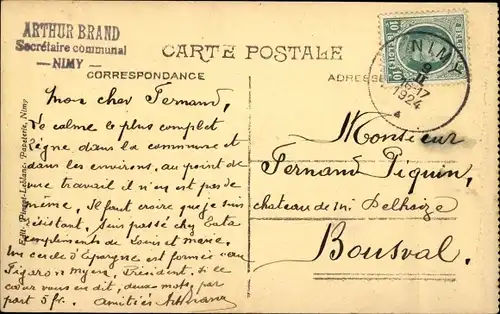 ARTHUR BRAND
Secrétaire communal
— NIMY —
CARTE POSTALE
CORRESPONDANCE
ADRESSE
NIMY
9
II
16-17
1924
10
10
Mon cher Fernand,
Le calme le plus complet
règne dans la commune et
dans les environs, au point de
vue travail il n'en est pas de
même, Il faut croire que je suis
résistant. Suis passé chez
compliments de Louis et Marie.
Un cercle d'Épargne est formé au
Pigeron Myen, Président, si le
cœur vous en dit, deux mots, par
part 5 fr. Amitiés
Monsieur
Fernand Piquin,
chateau de Mr Delhaize
Bousval.
Edit. Leblanc, Papeterie, Nimy